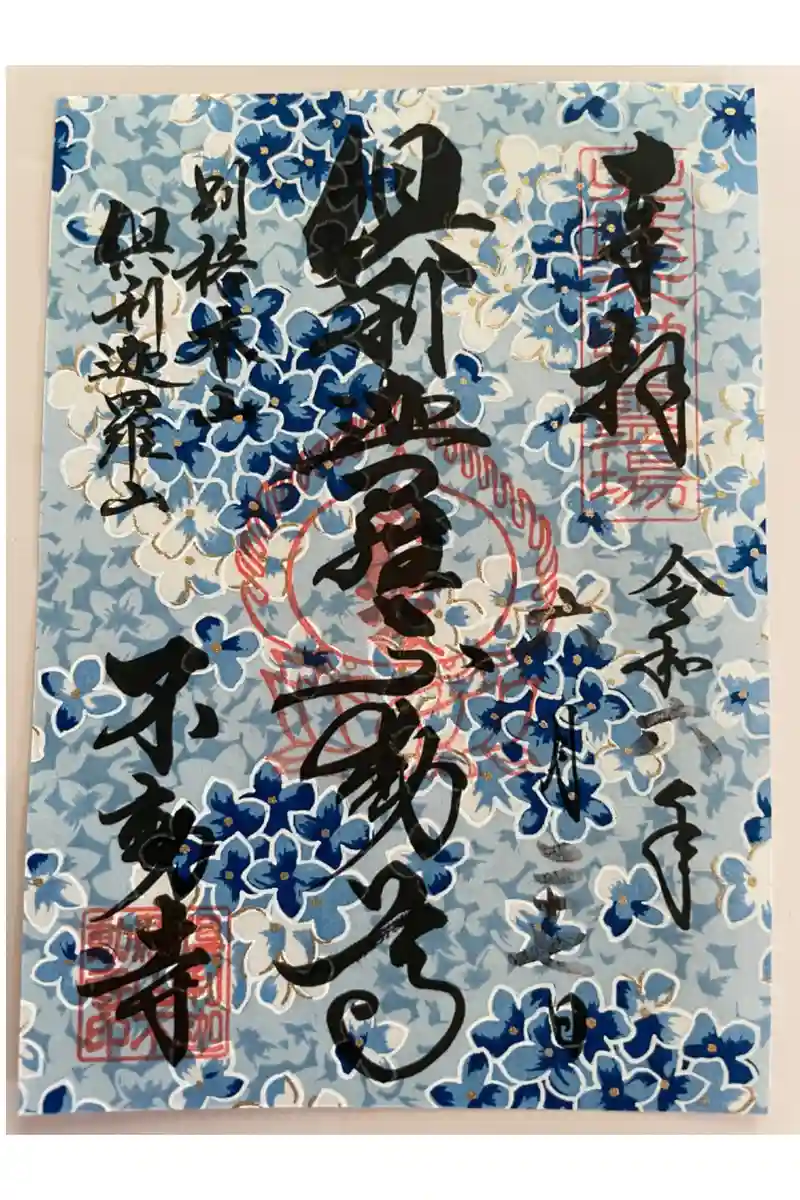 奉拝
令和六年
六月
日
倶利迦羅不動尊
別格本山
倶利迦羅山
不動寺